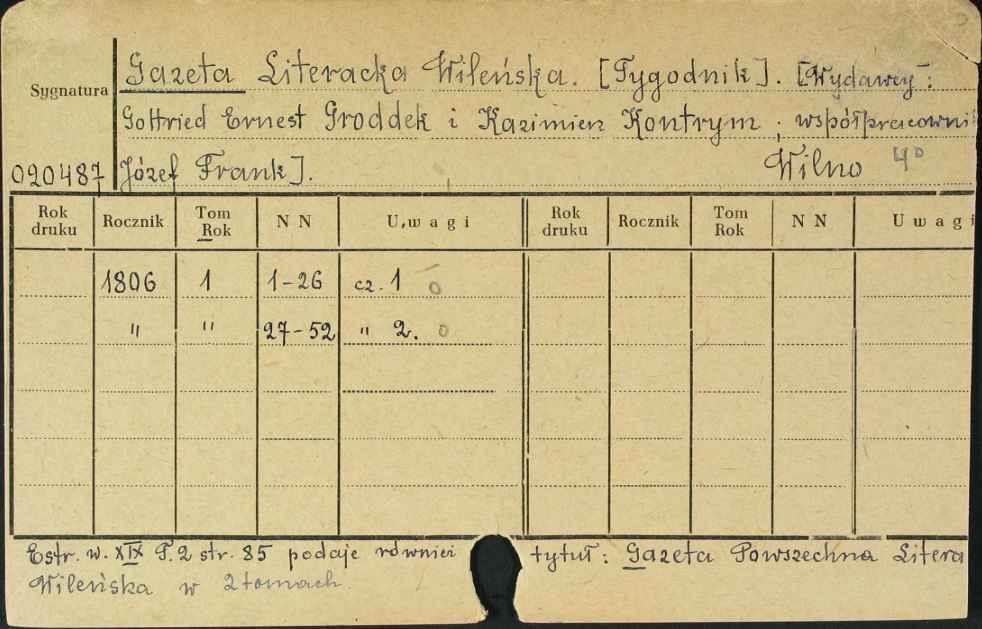 Gazeta Literacka Wileńska. [Tygodnik]. [Wydawcy:
Sygnatura
Gottfried Ernest Groddek i Kazimierz Kontrym ; współpracowni
020487 Józef Frank]. Wilno 4°
Rok druku Rocznik Tom Rok N N U w a g i Rok druku Rocznik Tom Rok N N U w a g i
1806 1 1-26 cz. 1 0
" " 27-52 " 2. 0
Estr. w. XIX T.2 str. 85 podaje również tytuł: Gazeta Powszechna Litera
Wileńska w 2 tomach.